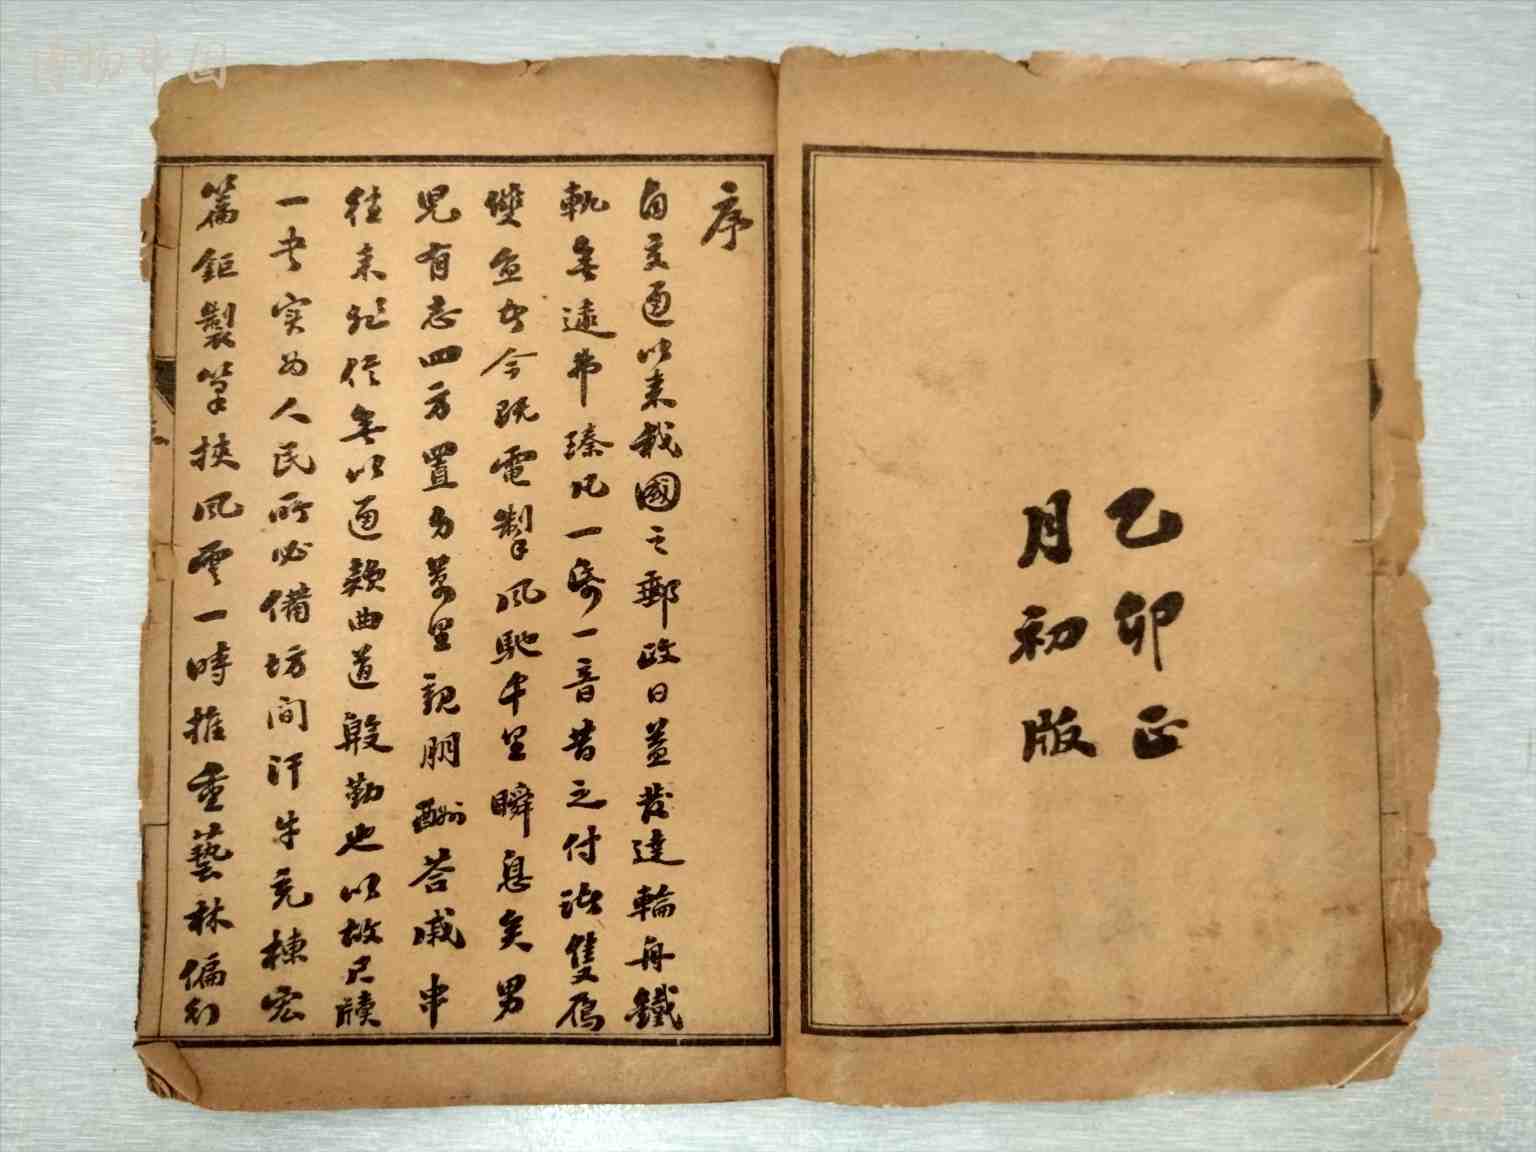 乙卯正
月初版
序
自交通以来我國之郵政日益發達輪舟鐵
軌無遠弗臻凡一啓一音昔之付諸隻鴈
雙魚者今既電掣風馳千里瞬息矣男
児有志四方置身萬里親朋酬荅戚串
往来非信無以通款曲道殷勤也以故尺牘
一書実為人民所必備坊间汗牛充棟宏
篇鉅製筆挾風雲一時推重藝林偏幻
博物中国